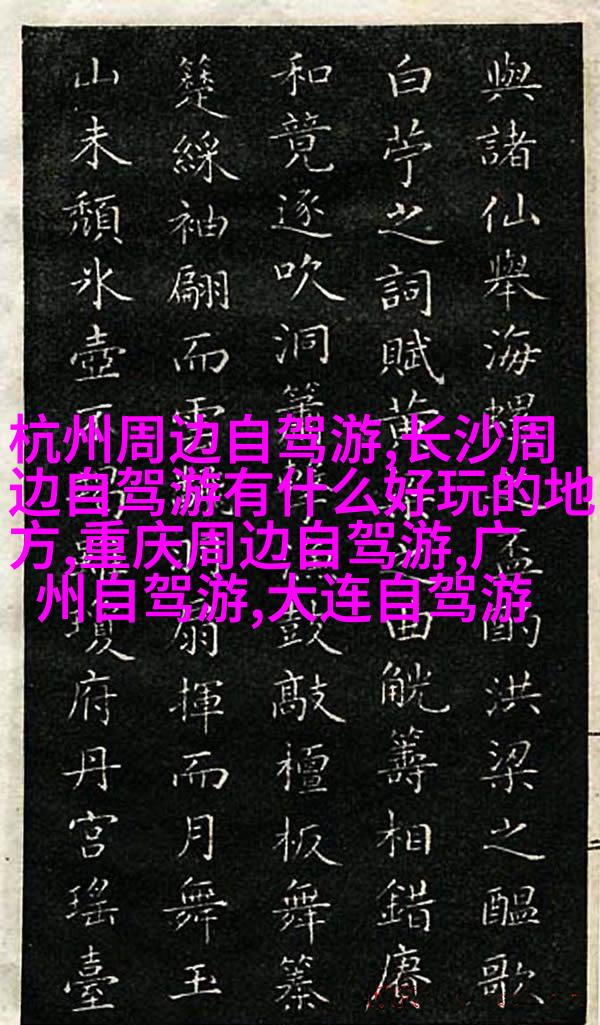 杭州周边自驾游,长沙周
边自驾游有什么好玩的地
方,重庆周边自驾游,广
州自驾游,大连自驾游
與諸仙舉海螺盃酌洪梁之醞歌
白苧之詞賦黃之曲觥籌相錯賡
和竟逐吹洞簫鼓敲檀板舞
綵袖翩而雲扇揮而月舞玉
山未頹氷壺瓊府丹宮瑤臺